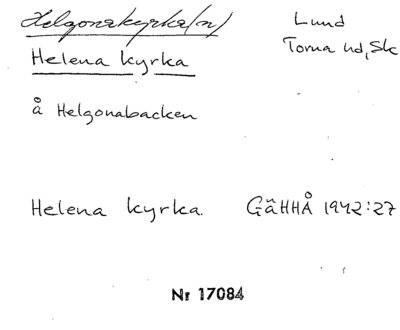 Helgonakyrka(n)
Lund
Helena kyrka
Torna hd, Sk
å Helgonabacken
Helena kyrka. GäHHÅ 1942:27
Nr 17084